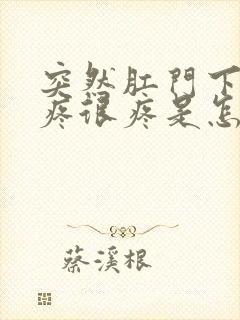 突然肛門下
疼很疼是怎
蔡溪根